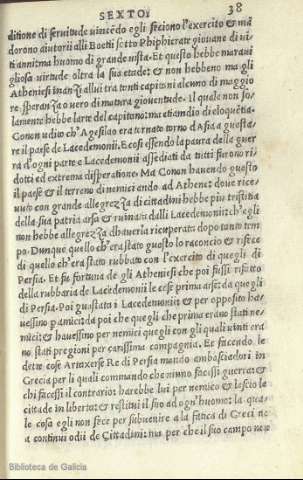 SEXTO. 38
ditione di seruitude vincẽdo egli feciono l'exercito & mã
dorono aiutorii alli Boetii sotto Phiphicrate giouane di vi
ti anni ma huomo di grande vista. Et questo hebbe maraui
gliosa virtude oltra la sua etade: & non hebbeno mai gli
Atheniesi inanzi a lui tra tanti capitani alcuno di maggio
re speranza o vero di matura giouentude. Il quale non so
lamente hebbe l'arte del capitano: ma etiamdio di eloquẽtia.
Conon udito ch' Agesilao era tornato torno d'Asia a guasta
re il paese de Lacedemonii. E cosi essendo la paura della guer
ra d'ogni parte e Lacedemonii assediati da tutti furono ri
dotti ad extrema disperatione. Ma Conon hauendo guasto
il paese & il terreno di nemici ando ad Athene: doue rice
uuto con grande allegrezza di cittadini hebbe piu tristitia
della sua patria arsa & ruinata dalli Lacedemonii: ch'egli
non hebbe allegrezza d'hauerla ricuperata dopo tanto tem
po. Dunque quello ch'era stato guasto lo raconcio & rifece
di quello ch'era stato rubbato con l'exercito di quegli di
Persia. Et fu fortuna de gli Atheniesi che poi fussi rifatto
della rubbaria de Lacedemonii le cose prima arse da quegli
di Persia. Poi guastata i Lacedemonii: & per opposito ha
uessino panicidã poi che quegli che prima erano stati ne
mici: & hauessino per nemici quegli con gli quali vinti era
no stati pregioni per carissima compagnia. Et facendo le
dette cose Artaxerse Re di Persia mando ambasciadori in
Grecia per li quali commando che niuno facessi guerra: &
chi facessi il contrario: harebbe lui per nemico & lascio le
cittade in libertate: & restitui il suo ad ogn'huomo: la qua
le cosa egli non fece per subuenire a la fatica di Greci ne
a continui odii de Cittadini: ma per che il suo campo non
Biblioteca de Galicia